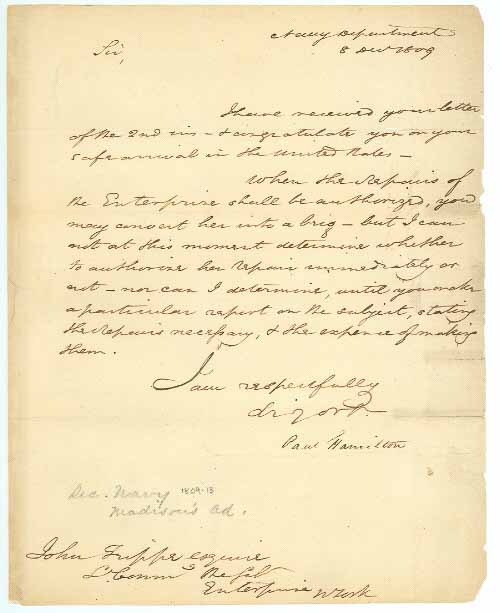 Navy Department
8 Decr 1809
Sir,
I have received your letter
of the 2nd ins - & congratulate you on your
safe arrival in the United States -
When the repairs of
the Enterprise shall be authorized, you
may convert her into a brig - but I can
not at this moment determine whether
to authorize her repair immediately or
not - nor can I determine, until you make
a particular report on the subject, stating
the repairs necessary, & the expense of making
them.
I am respectfully
Paul Hamilton
Sec. Navy 1809-13
Madison's Ad.
John Trippe esquire
Lt Comm
Enterprise N York